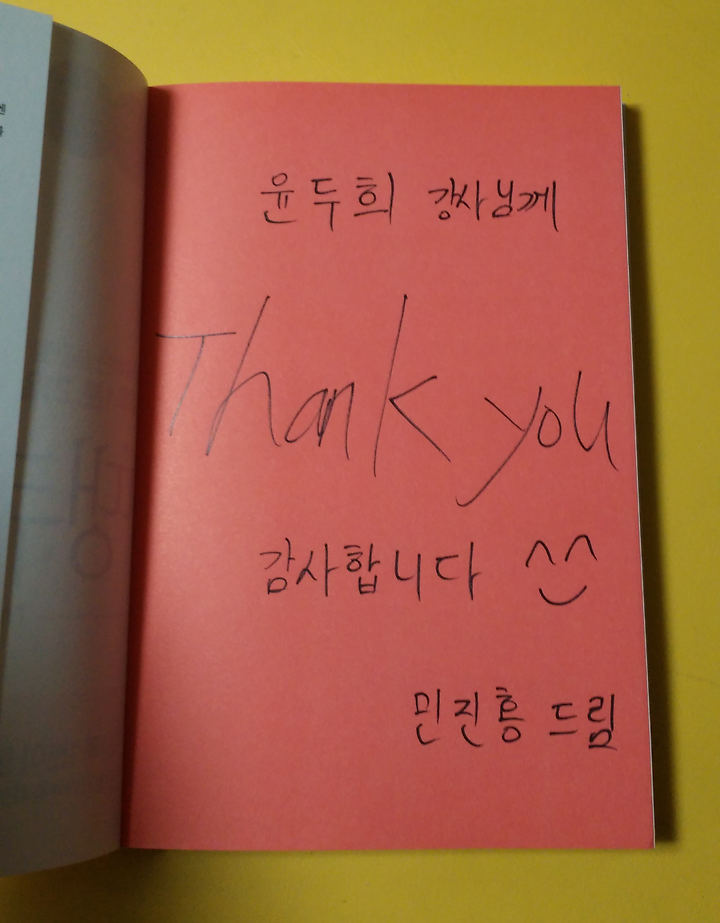 윤두희 강사님께
Thank you
감사합니다 ^^
민진홍 드림